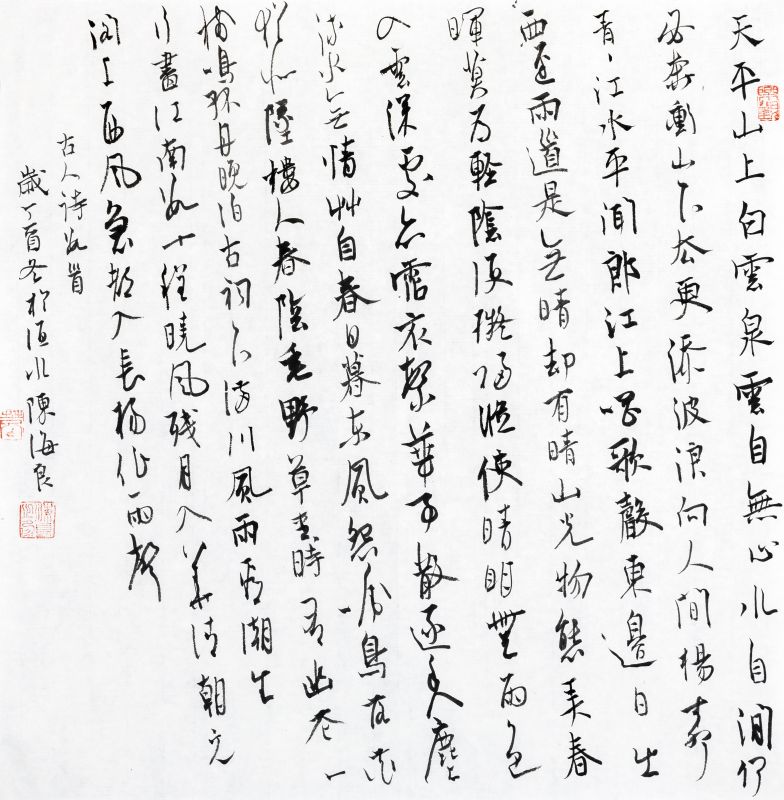 天平山上白雲泉雲自無心水自閒何
必奔衝山下去更添波浪向人間楊柳
青々江水平聞郎江上唱歌聲東邊日出
西邊雨道是無晴却有晴山光物態弄春
暉莫為輕陰便擬歸縱使晴明無雨色
入雲深處亦霑衣繁華事散逐香塵
流水無情艸自春日暮東風怨啼鳥落花
猶似墜樓人春陰垂野草青時有幽花一
樹明孤舟晚泊古祠下滿川風雨看潮生
行盡江南數十程曉風残月入華清朝元
閣上西風急都入長楊作雨聲
古人詩數首
歲丁酉冬於洹水陳海良